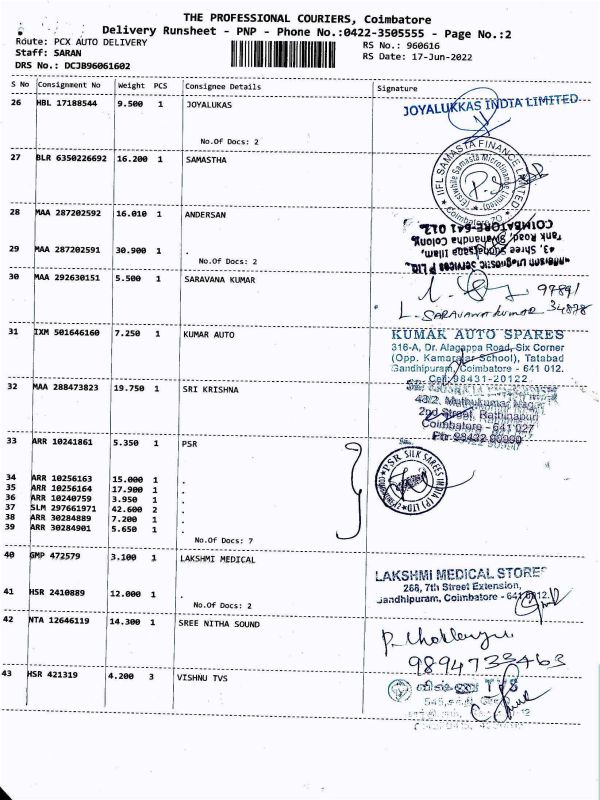 THE PROFESSIONAL COURIERS, Coimbatore
Delivery Runsheet - PNP - Phone No.:0422-3505555 - Page No.:2
Route: PCX AUTO DELIVERY
RS No.: 960616
Staff: SARAN
RS Date: 17-Jun-2022
DRS No.: DCJB96061602
S No Consignment No Weight PCS Consignee Details Signature
26 HBL 17188544 9.500 1 JOYALUKAS
JOYALUKKAS INDIA LIMITED
No.Of Docs: 2
27 BLR 6350226692 16.200 1 SAMASTHA
IIFL SAMASTA FINANCE LIMITED
(Erstwhile Samasta Microfinance Limited)
Coimbatore ZO
28 MAA 287202592 16.010 1 ANDERSAN
COIMBATORE-641 012.
Tank Road, Sivanandha Colony,
43, Shree Sugnanasa Illam,
Diagnostic Services P Ltd.
29 MAA 287202591 30.900 1 .
No.Of Docs: 2
30 MAA 292630151 5.500 1 SARAVANA KUMAR
99891
L. SARAVANA KUMAR 34878
31 IXM 501646160 7.250 1 KUMAR AUTO
KUMAR AUTO SPARES
316-A, Dr. Alagappa Road, Six Corner
(Opp. Kamarajar School), Tatabad
Gandhipuram, Coimbatore - 641 012.
Cell: 98431-20122
32 MAA 288473823 19.750 1 SRI KRISHNA
48/2, Muthukumar Nagar
2nd Street, Rathinapuri
Coimbatore - 641 027
33 ARR 10241861 5.350 1 PSR
PSR SILK SAREES INDIA (P) LTD
34 ARR 10256163 15.000 1 .
35 ARR 10256164 17.900 1 .
36 ARR 10240759 3.950 1 .
37 SLM 297661971 42.600 2 .
38 ARR 30284889 7.200 1 .
39 ARR 30284901 5.650 1 .
No.Of Docs: 7
40 GMP 472579 3.100 1 LAKSHMI MEDICAL
LAKSHMI MEDICAL STORES
268, 7th Street Extension,
Gandhipuram, Coimbatore - 641 012.
41 HSR 2410889 12.000 1 .
No.Of Docs: 2
42 NTA 12646119 14.300 1 SREE NITHA SOUND
9894733463
43 HSR 421319 4.200 3 VISHNU TVS
TVS